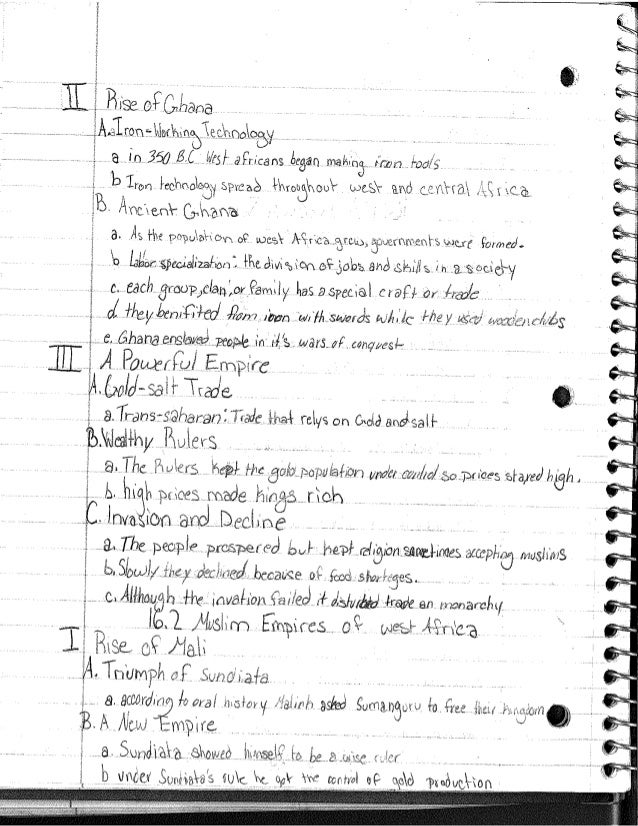 II Rise of Ghana
A. Iron-Working Technology
a in 350 B.C West africans began making iron tools
b Iron technology spread throughout west and central Africa
B. Ancient Ghana
a. As the population of west Africa grew, governments were formed.
b Labor specialization: the division of jobs and skills in a society
c. each group, clan, or family has a special craft or trade
d. they benifited from iron with swords while they used wooden clubs
e. Ghana enslaved people in it's wars of conquest
III A Powerful Empire
A. Gold-salt Trade
a. Trans-saharan: Trade that relys on Gold and salt
B. Wealthy Rulers
a. The Rulers kept the gold population under control so prices stayed high.
b. high prices made kings rich
C. Invasion and Decline
a. The people prospered but kept religion sometimes accepting muslims
b. Slowly they declined because of food shorteges.
c. Although the invation failed it disturbed trade an monarchy
16.2 Muslim Empires of west Africa
I Rise of Mali
A. Triumph of Sundiata
a. according to oral history Malinh asked Sumanguru to free their kingdom
B. A New Empire
a. Sundiata showed himself to be a wise ruler
b under Sundiata's rule he got the control of gold production